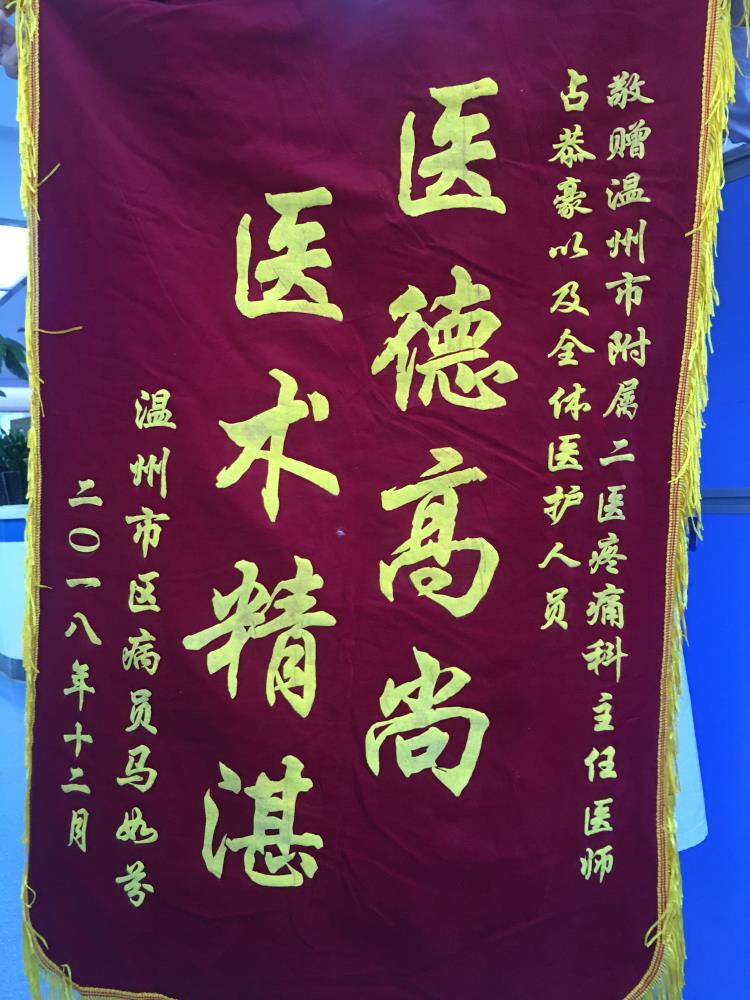 敬赠温州市附属二医疼痛科主任医师
占恭豪以及全体医护人员
医德高尚
医术精湛
温州市区病员马如芬
二〇一八年十二月